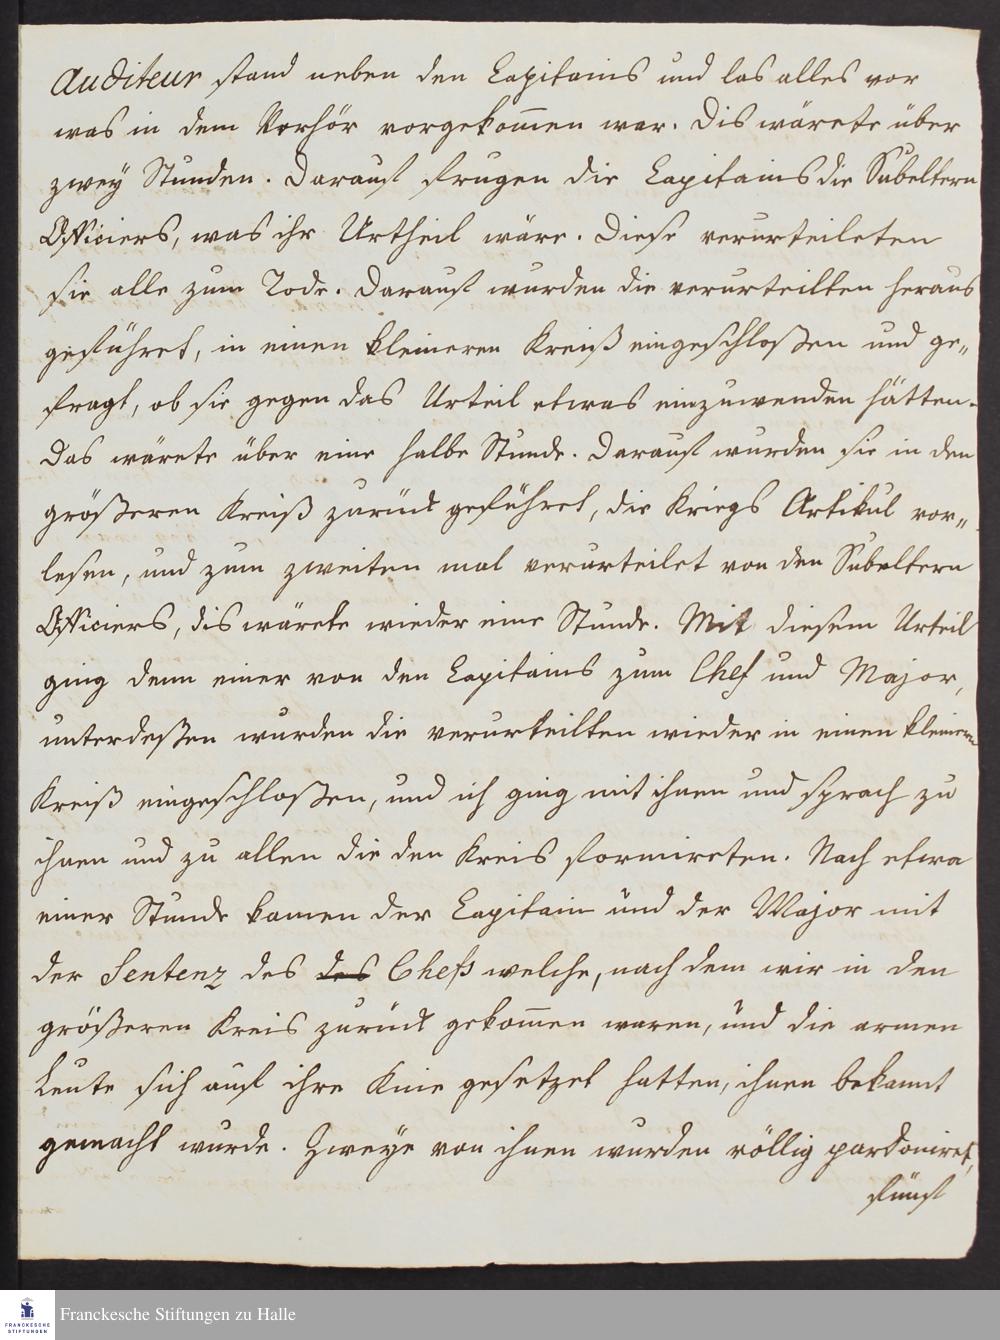 Auditeur stand neben den Capitains und las alles vor
was in dem Verhör vorgekom̄en war. Dis wärete über
zwey Stunden. Darauf frugen die Capitains die Subeltern
Officiers, was ihr Urtheil wäre. Diese verurteileten
sie alle zum Tode. Darauf wurden die verurteilten heraus
geführet, in einen kleineren Kreiß eingeschloßen und ge„
fragt, ob sie gegen das Urteil etwas einzuwenden hätten.
Das wärete über eine halbe Stunde. Darauf wurden sie in den
größeren Kreiß zurück geführet, die Kriegs Artikul vor„
lesen, und zum zweiten mal verurteilet von den Subeltern
Officiers, dis wärete wieder eine Stunde. Mit diesem Urteil
ging denn einer von den Capitains zum Chef und Major,
unterdeßen wurden die verurteilten wieder in einen kleineren
Kreiß eingeschloßen, und ich ging mit ihnen und sprach zu
ihnen und zu allen die den Kreis formireten. Nach etwa
einer Stunde kamen der Capitain und der Major mit
der Sentenz des des Chefs welche, nach dem wir in den
größeren Kreis zurück gekom̄en waren, und die armen
Leute sich auf ihre Knie gesetzet hatten, ihnen bekannt
gemacht wurde. Zweye von ihnen wurden völlig pardoniret,
fünf
Franckesche Stiftungen zu Halle
FRANCKESCHE
STIFTUNGEN